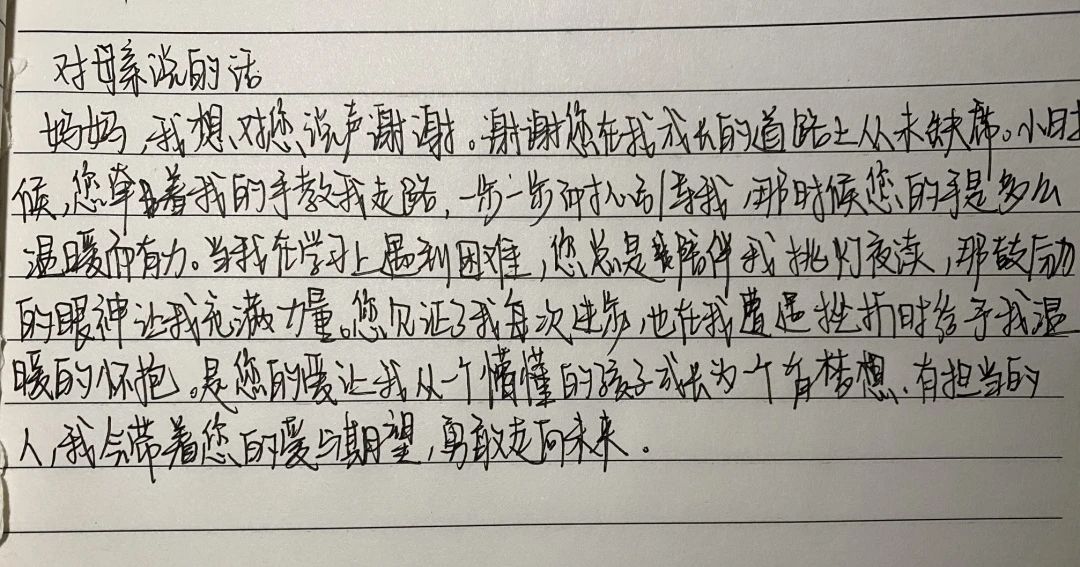 对母亲说的话
妈妈,我想对您说声谢谢。谢谢您在我成长的道路上从未缺席。小时
候,您牵着我的手教我走路,一步一步耐心引导我,那时候您的手是多么
温暖而有力。当我在学习上遇到困难,您总是陪伴我挑灯夜读,那鼓励
的眼神让我充满力量。您见证了我每次进步,也在我遭遇挫折时给予我温
暖的怀抱。是您的爱让我从一个懵懂的孩子成长为一个有梦想、有担当的
人,我会带着您的爱与期望,勇敢走向未来。